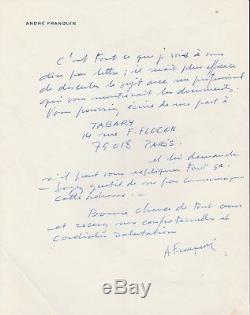 ANDRÉ FRANQUIN
C'est tout ce que je vous à vous
dire par lettre; il serait plus efficace
de discuter le sujet avec un professionnel
qui vous montrerait les documents.
Vous pourriez écrire de ma part à
TABARY
14 rue F. FLOCON
75018 PARIS.
et lui demander
s'il peut vous expliquer tout ça.
Soyez gentil de ne pas communiquer
cette adresse.
Bonne chance de tout cœur
et recevez mes confraternelles et
cordiales salutations
AFranquin